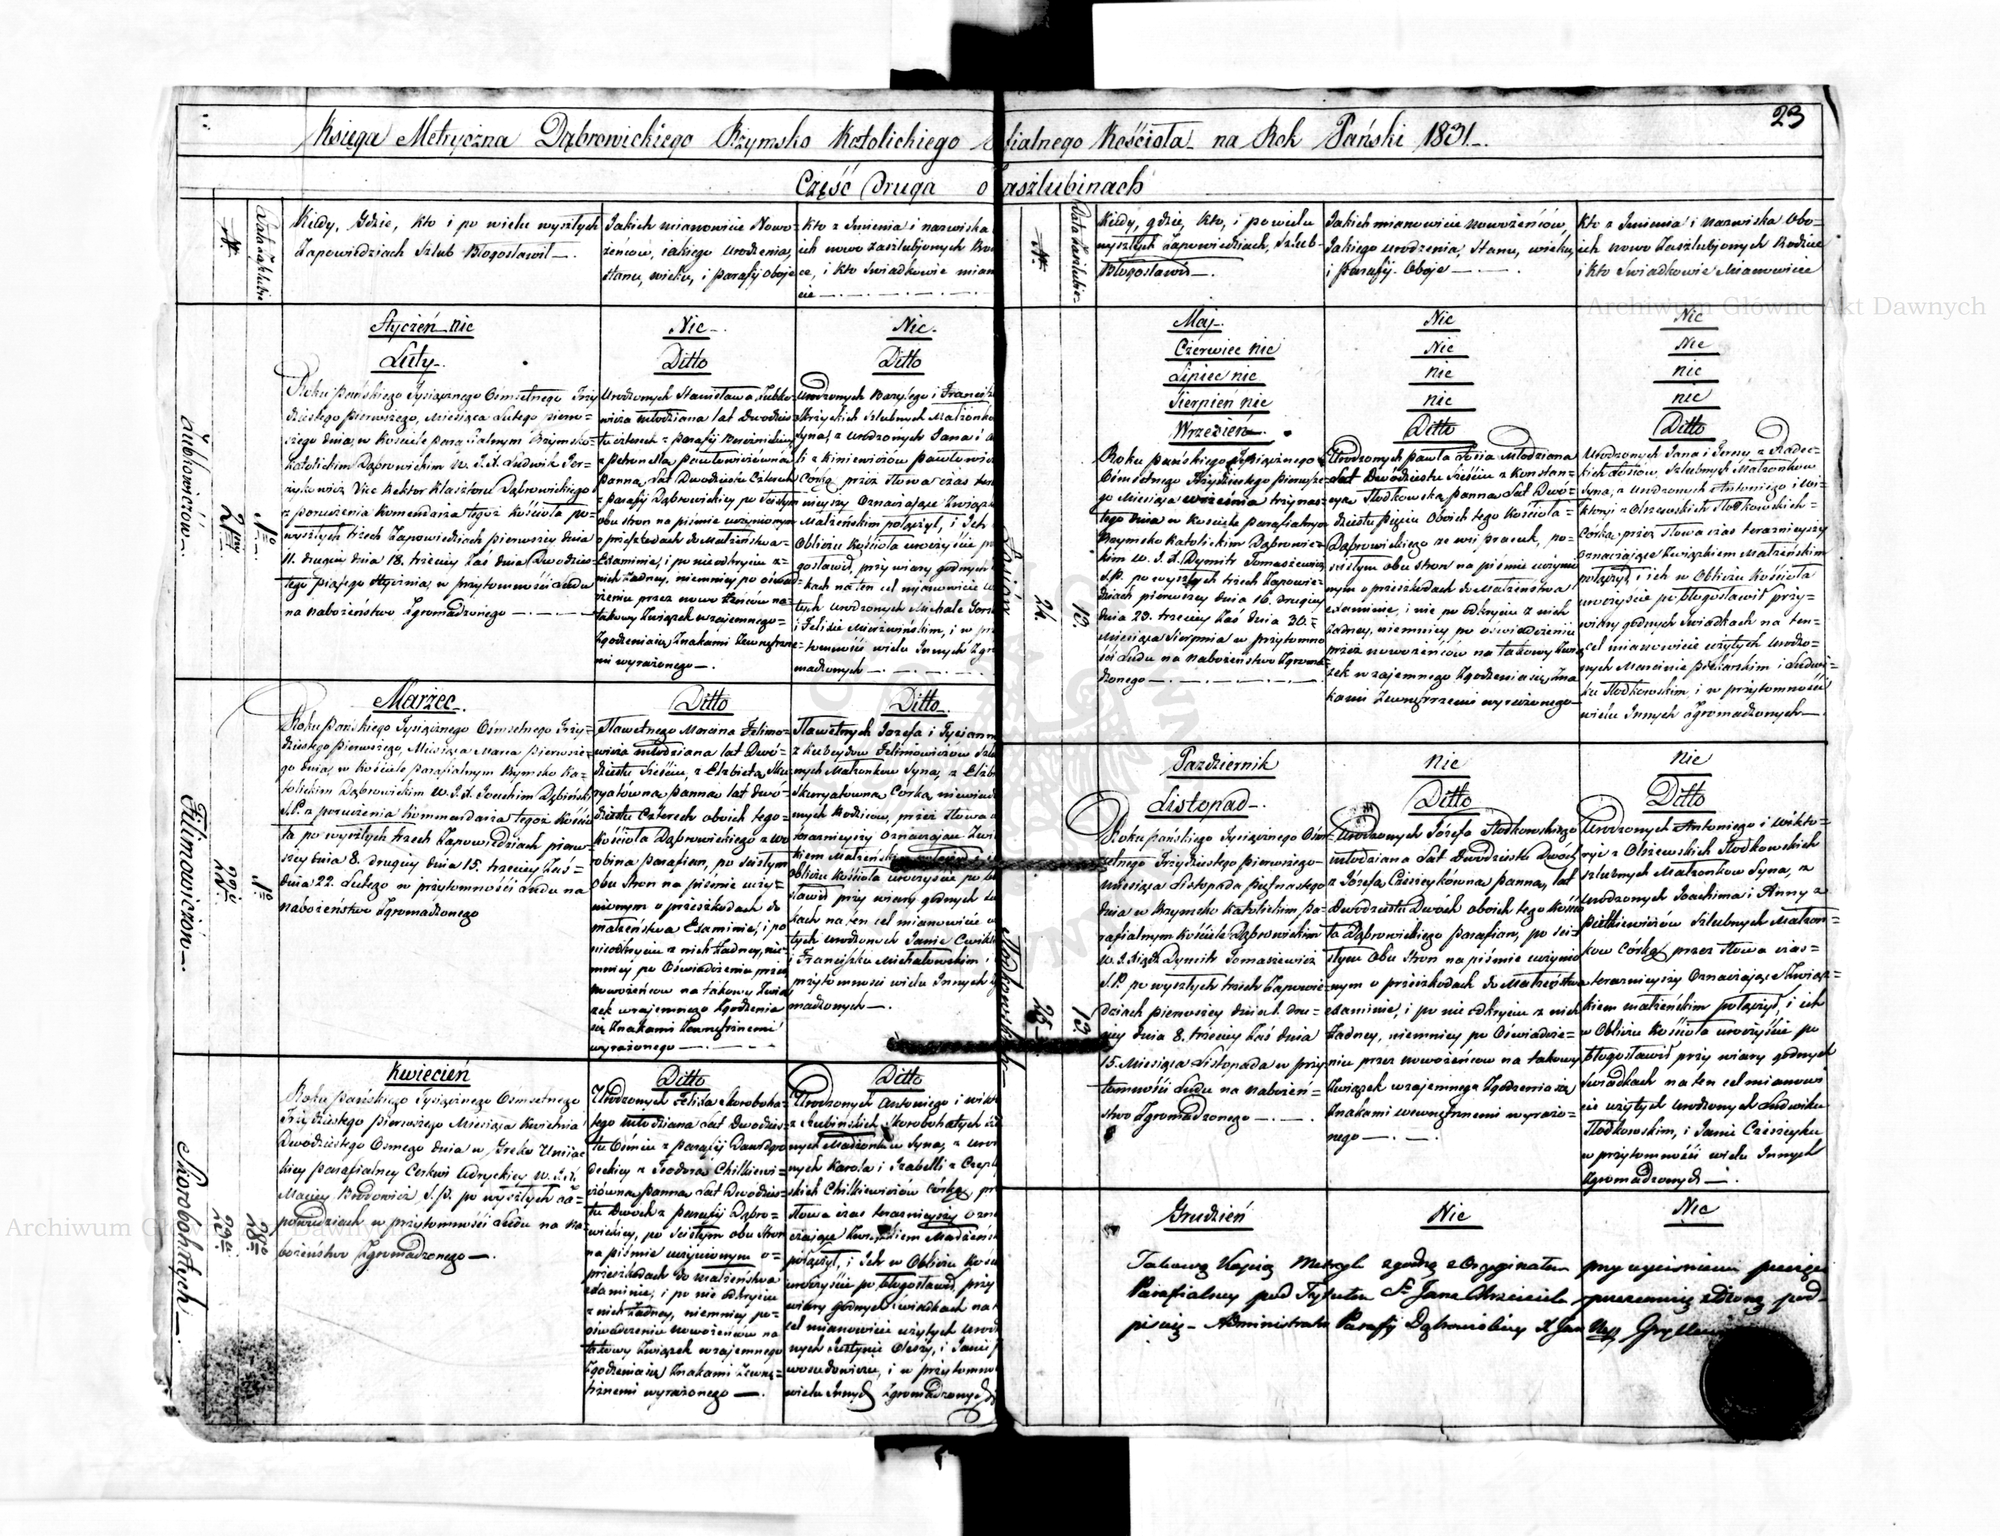 23
Księga Metryczna Dąbrowickiego Rzymsko Katolickiego fialnego Kościoła na Rok Pański 1831.
Część Druga o aszlubinach
№
Data Zaślubie
Kiedy, Gdzie, Kto i po wielu wyszłych
Zapowiedziach Szlub Błogosławił
Jakich mianowicie Nowo=
żeńców, iakiego urodzenia,
stanu, wieku, i parafij oboje
Kto z Imienia i nazwiska
ich nowo zaszlubjonych Ro
ce, i kto Swiadkowie mian
cie
Styczeń nic
Nic
Nic.
Luty
Ditto
Ditto
Zubkowiczów
21
1
Roku Pańskiego Tysiącznego Osmsetnego Trzy
dziestego pierwszego, Miesiąca Lutego pierw=
szego dnia, w Kościele parafialnym Rzymsko=
Katolickim Dąbrowickim W. J. X. Ludwik
Vice Rektor Klasztoru Dąbrowickiego
z poruczenia Komendarza tegoż Kościoła po=
wyszłych trzech Zapowiedziach pierwszey dnia
11. drugiey dnia 18. trzeciey zaś dnia Dwudzies=
tego piątego Stycznia, w przytomności Ludu
na nabożeństwo Zgromadzonego
Urodzonych Stanisława Zubko=
wicza młodziana lat Dwudzies=
tu czterech z parafij
z Petronellą Pawłowiczówną
panną Lat Dwudziestu Czterech
z parafij Dąbrowickiey po Ścisłym
obu stron na piśmie uczynionym
o przeszkodach do Małżeństwa=
Examinie, i po nieodkryciu z=
nich żadney, niemniey po oświad=
czeniu przez nowo żeńców na=
takowy Związek wzajemnego=
Zgodzenia się, Znakami Zewnętrzne=
mi wyrażonego
Urodzonych Bazylego i Francisz
Szlubnych Małżonków
Syna, z urodzonych Jana i
li z Kiniewiczów Pawłowic
Córką przez słowa czas ter
nieyszy Oznaczające Związ
Małżeńskim połączył, i ich
Obliczu Kościoła uroczyście p
gosławił, przy wiary godnych
kach na ten cel mianowicie u
tych urodzonych Michale
i Felixie Mierzwińskim, i w pr
tomności wielu Innych Zgr
madzonych
Marzec
Ditto
Ditto.
Filimowiczów
22
1
Roku Pańskiego Tysiącznego Osmsetnego Trzy=
dziestego pierwszego, Miesiąca Marca pierwsze=
go dnia, w Kościele parafialnym Rzymsko Ka=
tolickim Dąbrowickim W. J. X. Joachim Dąbiński
S.P. z poruczenia Kommendarza tegoż Kościo
ła po wyszłych trzech Zapowiedziach pierw=
szey dnia 8. drugiey dnia 15. trzeciey zaś=
dnia 22. Lutego w przytomności Ludu na
nabożeństwo Zgromadzonego
Sławetnego Marcina Felimo=
wicza młodziana lat Dwó=
dziestu Sześciu, z Elżbietą Sku
ryatówną panną lat dwó=
dziestu Czterech oboich tego=
Kościoła Dąbrowickiego z Wo
robina parafian, po ścisłym
obu stron na piśmie uczy=
nionym o przeszkodach do
małżeństwa Examinie, i po
nieodkryciu z nich żadney, nie=
mniey po Oświadczeniu przez
nowożeńców na takowy Zwią
zek wzajemnego Zgodzenia
się, Znakami Zewnętrznemi
wyrażonego
Sławetnych Jozefa i Tycianny
z Kubeyków Felimowiczów Szlu
nych Małżonków Syna, z Elżb
Skuryatowną Córką niewiad
mych Rodziców, przez słowa
teraznieyszy Oznaczające Zwi
kiem Małżeńskim
obliczu Kościoła uroczyście po b
sławił przy wiary godnych
kach na ten cel mianowicie u
tych urodzonych Janie
i Franciszku Michałowskim i
przytomności wielu Innych
madzonych
Kwiecień
Ditto
Ditto
Skorobohatych
23
28
Roku Pańskiego Tysiącznego Osmsetnego
Trzydziestego pierwszego Miesiąca Kwietnia
Dwudziestego Osmego dnia w Greko Uniiac
kiey parafialney Cerkwi Udryckiey W. J. X.
Maciey Brodowicz S.P. po wyszłych za=
powiedziach w przytomności Ludu na na=
bożeństwo Zgromadzonego
Urodzonych Felixa Skoroboha=
tego młodziana Lat Dwudzies=
tu Osmiu z parafij
deckiey z Teodorą Chilkiewi=
czówną panną Lat Dwudzies=
tu Dwóch z parafij Dąbro=
wickiey, po ścisłym obu stron
na piśmie uczynionym o=
przeszkodach do małżeństwa
Examinie, i po nie odkryciu
z nich żadney, niemniey po=
oświadczeniu nowożeńców na
takowy Związek wzajemnego
Zgodzenia się Znakami Zewnę=
trznemi wyrażonego
Urodzonych Antoniego i Wikt
z Łubińskich Skorobohatych
nych Małżonków Syna, z uro
nych Karola i Izabelli z Czapl
skich Chilkiewiczów Córką, pr
słowa czas teraznieyszy ozn
czające Związkiem Małżeńs
połączył, i Ich w Obliczu Kości
uroczyście po błogosławił przy
wiary godnych świadkach na
cel mianowicie użytych urod
nych Justynie Olesży, i Janie
i w przytomno
wielu Innych Zgromadzonych
№
Data Zaślubie=
Kiedy, gdzie, Kto, i po wielu
wyszłych Zapowiedziach, Szlub=
Błogosławił
Jakich mianowicie nowożeńców,
Jakiego urodzenia, Stanu, wieku,
i parafij Oboje
Kto z Imienia i nazwiska obo=
ich nowo Zaszlubjonych Rodzice
i Kto Swiadkowie Mianowicie
Maj
Nic
Nic
Czerwiec nic
Nic
Nic
Lipiec nic
nic
nic
Sierpień nic
nic
nic
Wrzesień
Ditto
Ditto
24.
13.
Roku Pańskiego Tysiącznego
Osmsetnego Trzydziestego pierwsze=
go Miesiąca września trzynas=
tego dnia w Kościele parafialnym
Rzymsko Katolickim Dąbrowic=
kim W. J. X. Dymitr Tomaszewicz
S.P. po wyszłych trzech Zapowie=
dziach pierwszey dnia 16. drugiey
dnia 23. trzeciey zaś dnia 30.=
Miesiąca Sierpnia w przytomno
ści Ludu na nabożeństwo Zgroma=
dzonego
Urodzonych Pawła Łosia Młodziana
Lat Dwódziestu Sześciu z Konstan=
cyą Słodkowską panną Lat Dwó=
dziestu Pięciu Oboich tego Kościoła=
Dąbrowickiego ze wsi praczuk, po=
ścisłym obu stron na piśmie uczynio
nym o przeszkodach do Małżeństwa
Examinie, i nie po odkryciu z nich
żadney, niemniey po oświadczeniu
przez nowożeńców na takowy Zwią
zek wzajemnego Zgodzenia się, Zna
kami Zewnętrznemi wyrażonego
Urodzonych Jana i Jenny z Radec=
kich Łosiów, Szlubnych Małżonków
Syna, z Urodzonych Antoniego i Wi=
ktoryi z Olszewskich Słodkowskich=
Córką, przez słowa czas teraznieyszy
oznaczające Związkiem Małżeńskim
połączył i ich w Obliczu Kościoła
uroczyście po błogosławił przy=
wiary godnych Swiadkach na ten=
cel mianowicie użytych Urodzo=
nych Marcinie Piekarskim i Ludwi=
ku Słodkowskim, i w przytomności
wielu Innych Zgromadzonych
Pazdziernik
nic
nic
Listopad
Ditto
Ditto
Słodkowskich
25
13.
Roku Pańskiego Tysiącznego Osm
setnego Trzydziestego pierwszego=
miesiąca Listopada piętnastego
dnia w Rzymsko Katolickim Pa=
rafialnym Kościele Dąbrowickim
W. J. Xiądz Dymitr Tomaszewicz
S.P. po wyszłych trzech Zapowie=
dziach pierwszey dnia 1. dru=
giey dnia 8. trzeciey zaś dnia
15. Miesiąca Listopada w przy=
tomności Ludu na nabożeń=
stwo Zgromadzonego
Urodzonych Józefa Słodkowskiego
młodziana Lat Dwudziestu Dwoch
z Józefą Czeszeykówną panną, lat
Dwudziestu Dwóch oboich tego Kościo
ła Dąbrowickiego parafian, po ści=
słym Obu Stron na piśmie uczynio
nym o przeszkodach do Małżeństwa
Examinie, i po nie odkryciu z nich
żadney, niemniey po Oświadcze=
niu przez nowożeńców na takowy
Związek wzajemnego Zgodzenia się
Znakami wewnętrznemi wyrażo=
nego
Urodzonych Antoniego i Wikto=
ryi z Olszewskich Słodkowskich
szlubnych Małżonków Syna, z
urodzonych Joachima i Anny z
Pietkiewiczów Szlubnych Małżon=
ków Córką przez słowa czas=
teraznieyszy Oznaczające Związ=
kiem małżeńskim połączył, i ich
w Obliczu Kościoła uroczyście po
błogosławił przy wiary godnych
świadkach na ten cel mianowi
cie użytych urodzonych Ludwiku
Słodkowskim, i Janie Czeszeyku
w przytomności wielu Innych
Zgromadzonych
Grudzień
Nic
Nic
Takową Kopią Metryk zgodną z Oryginałem przy wyciśnieniu pieczęci
Parafialney pod Tytułem S. Jana Chrzciciela własną podpi=
Administrator Parafij Dąbrowickiey X Jan
Archiwum Główne Akt Dawnych
Archiwum Główne Akt Dawnych